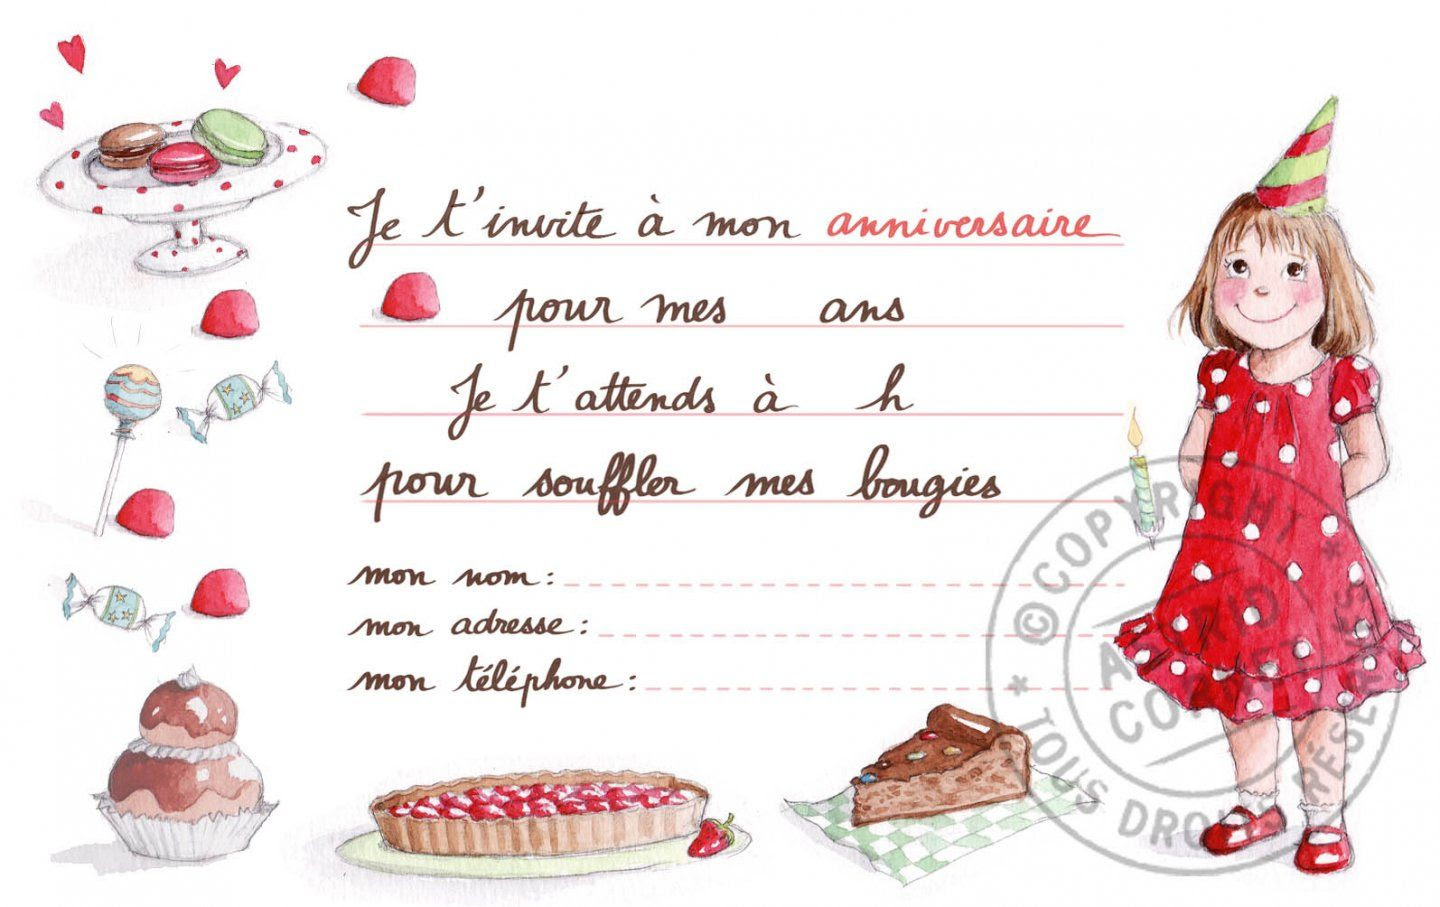 Je t'invite à mon anniversaire
pour mes ans
Je t'attends à h
pour souffler mes bougies
mon nom :
mon adresse :
mon téléphone :
© COPYRIGHT * TOUS DROITS RÉSERVÉS *